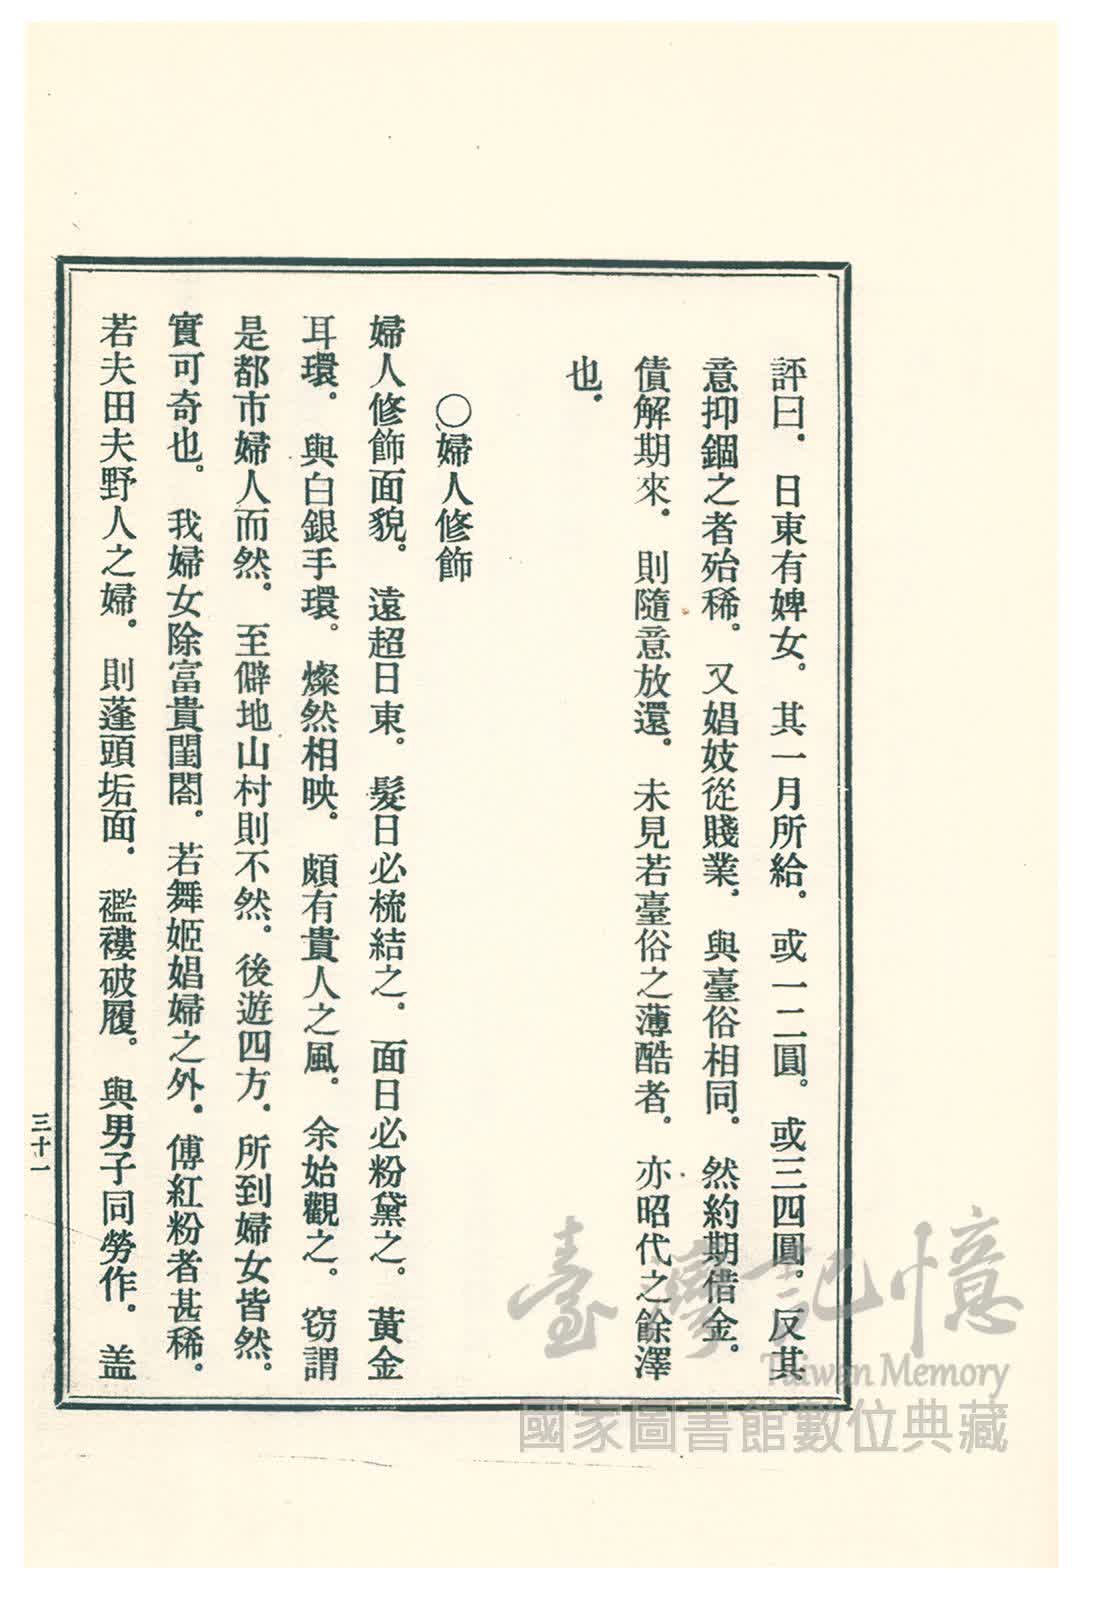 評曰。日東有婢女。其一月所給。或一二圓。或三四圓。反其
意抑錮之者殆稀。又娼妓從賤業。與臺俗相同。然約期借金。
債解期來。則隨意放還。未見若臺俗之薄酷者。亦昭代之餘澤
也。
〇婦人修飾
婦人修飾面貌。遠超日東。髮日必梳結之。面日必粉黛之。黃金
耳環。與白銀手環。燦然相映。頗有貴人之風。余始觀之。窃謂
是都市婦人而然。至僻地山村則不然。後遊四方。所到婦女皆然。
實可奇也。我婦女除富貴閨閤。若舞姬娼婦之外。傅紅粉者甚稀。
若夫田夫野人之婦。則蓬頭垢面。襤褸破履。與男子同勞作。盖
三十一
臺灣記憶
Taiwan Memory
國家圖書館數位典藏